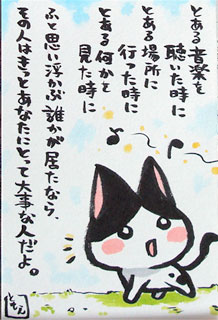 とある音楽を
聴いた時に
とある場所に
行った時に
とある何かを
見た時に
ふと思い浮かぶ誰かが居たなら、
その人はきっとあなたにとって大事な人だよ。
ともえ